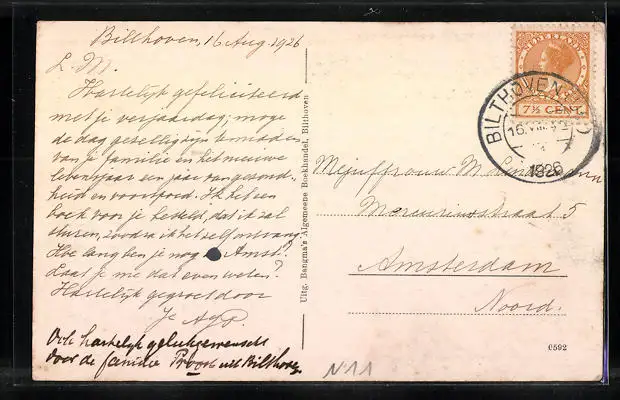 Bilthoven, 16 Aug. 1926
L. M.
Hartelijk gefeliciteerd
met je verjaardag; moge
de dag gezellig zijn te midden
van je familie en het nieuwe
levensjaar een jaar van gezond-
heid en voorspoed. Ik heb een
boek voor je besteld, dat ik zal
sturen, zoodra ik het zelf ontvang.
Hoe lang ben je nog Amst.?
Laat je me dat even weten?
Hartelijk gegroet door
Je
Ook hartelijk gelukgewenscht
door de familie Proost uit Bilthoven
Uitg. Bangma's Algemeene Boekhandel, Bilthoven
NEDERLAND
7½ CENT
BILTHOVEN
16 VIII
1926
Mejuffrouw M.
Mercuriusstraat 5
Amsterdam
Noord.
0592
N 11